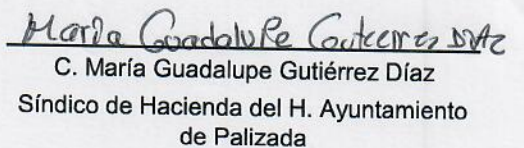 María Guadalupe Gutierrez DIAZ
C. María Guadalupe Gutiérrez Díaz
Síndico de Hacienda del H. Ayuntamiento
de Palizada